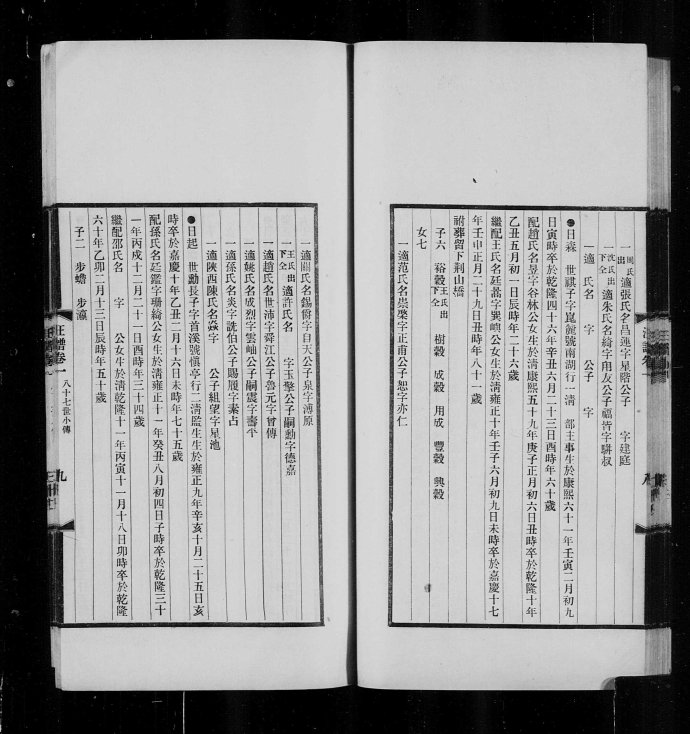 一 周氏出 適張氏名昌運字星階公子 字建庭
一 沈氏出下仝 適朱氏名綺字用友公子福皆字騈叔
一適 氏名 字 公子 字
●日森 世祺子字崑麓號南湖行一清 部主事生於康熙六十一年壬寅二月初九
日寅時卒於乾隆四十六年辛丑六月二十三日酉時年六十歲
配趙氏名昱字谷林公女生於清康熙五十九年庚子正月初六日丑時卒於乾隆十年
乙丑五月初一日辰時年二十六歲
繼配王氏名廷
年壬申正月二十九日丑時年八十一歲
祔葬留下荆山橋
子六 裕糓 王氏出下仝 樹糓 成糓 用成 豐糓 興糓
女七
一適范氏名崇棨字正甫公子恕字亦仁
一適關氏名錫爵字自天公子泉字溥原
一 王氏出下仝 適許氏名 字玉擎公子嗣勳字德嘉
一適趙氏名世沛字舜江公子魯元字曾傳
一適姚氏名成烈字雲岫公子嗣震字壽平
一適孫氏名炎字 伯公子賜履字素占
一適陝西陳氏名焱字 公子組望字星池
●日起 世勳長子字首溪號愼亭行二清監生生於雍正九年辛亥十月二十五日亥
時卒於嘉慶十年乙丑二月十六日未時年七十五歲
配孫氏名廷鑑字珊綺公女生於清雍正十一年癸丑八月初四日子時卒於乾隆三十
一年丙戌十二月二十一日酉時年三十四歲
繼配邵氏名 字 公女生於清乾隆十一年丙寅十一月十八日卯時卒於乾隆
六十年乙卯二月十三日辰時年五十歲
子二 步蟾 步瀛
汪譜卷一 八十七世小傳 九